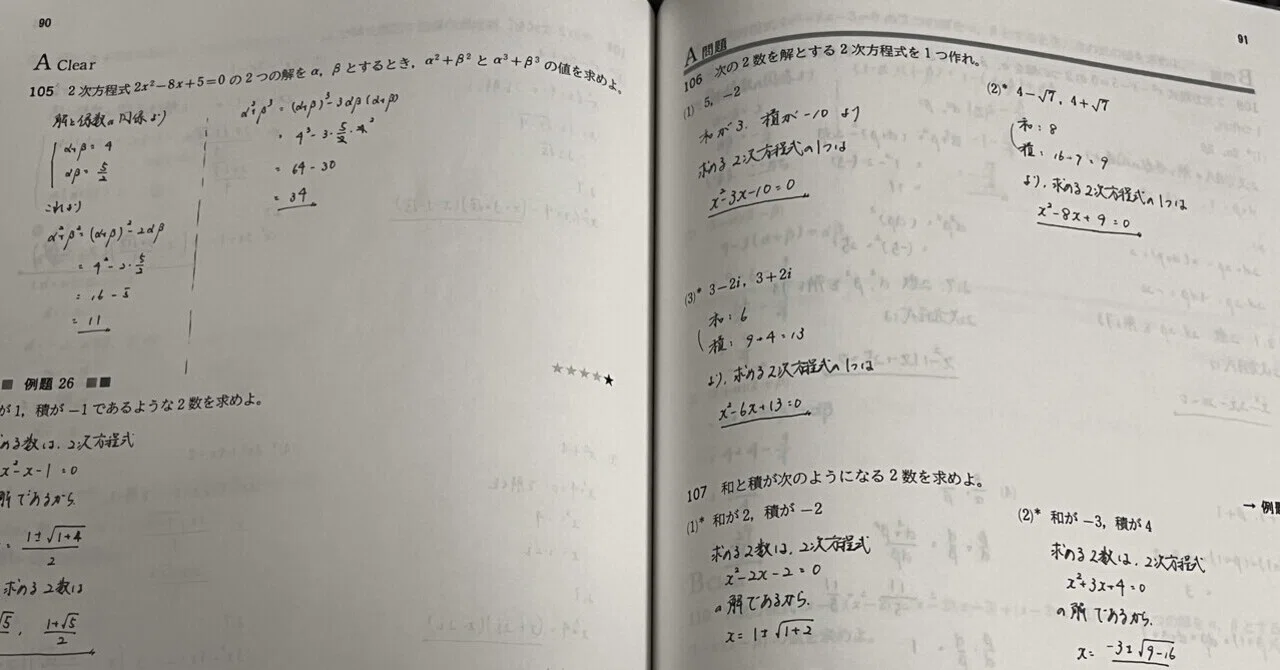 90
A Clear
105 2次方程式 2x²−8x+5=0 の2つの解をα, βとするとき, α²+β² と α³+β³ の値を求めよ。
解と係数の関係より
α+β = 4
αβ = 5/2
これより
α²+β² = (α+β)² − 2αβ
= 4² − 2・5/2
= 16 − 5
= 11
α³+β³ = (α+β)³ − 3αβ(α+β)
= 4³ − 3・5/2・4
= 64 − 30
= 34
■ 例題 26 ■■
★★★★★
が1, 積が −1 であるような2数を求めよ。
める数は, 2次方程式
x² − x − 1 = 0
解であるから
= (1±√(1+4))/2
求める2数は
√5, (1+√5)/2
91
A 問題
106 次の2数を解とする2次方程式を1つ作れ。
(1) 5, −2
和が3, 積が−10 より
求める2次方程式の1つは
x²−3x−10=0
(2)* 4−√7, 4+√7
和: 8
積: 16−7=9
より, 求める2次方程式の1つは
x²−8x+9=0
(3)* 3−2i, 3+2i
和: 6
積: 9+4=13
より, 求める2次方程式の1つは
x²−6x+13=0
107 和と積が次のようになる2数を求めよ。
→ 例題
(1)* 和が 2, 積が −2
求める2数は, 2次方程式
x²−2x−2=0
の解であるから,
x = 1±√(1+2)
(2)* 和が −3, 積が 4
求める2数は, 2次方程式
x²+3x+4=0
の解であるから,
x = (−3±√(9−16))